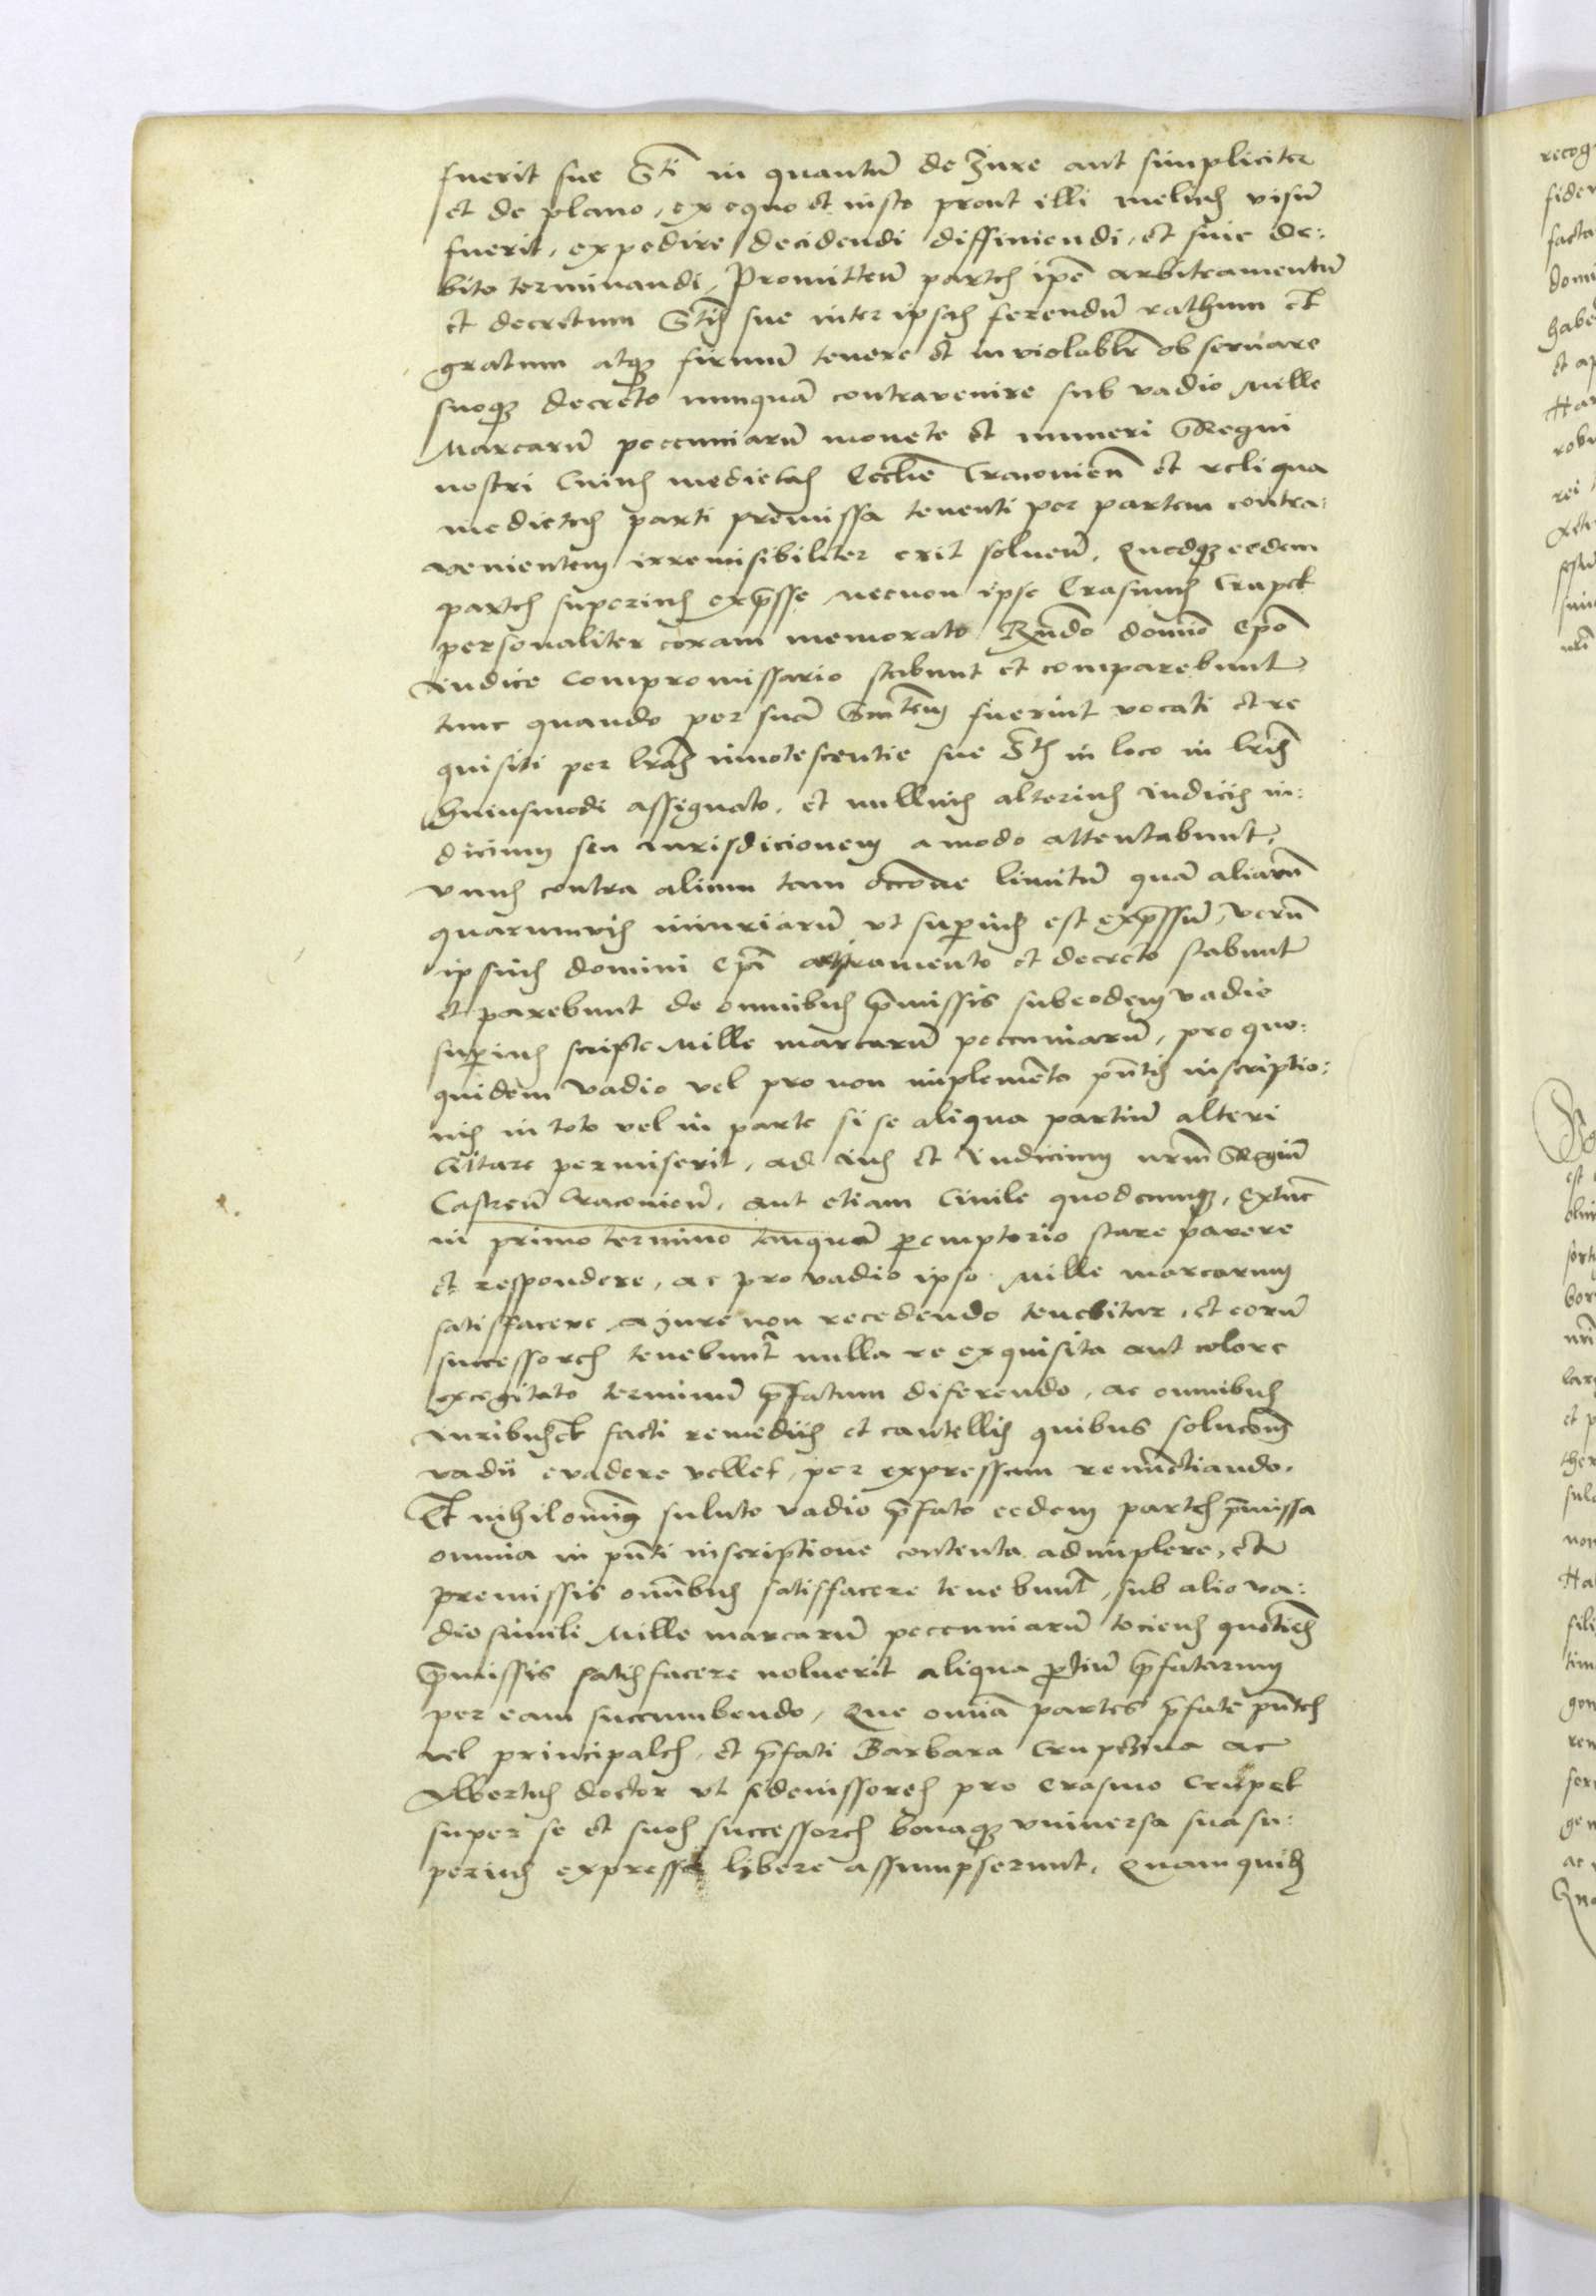 fuerit sue Sti in quantū de Jure aut simpliciter
et de plano, ex equo et iusto prout illi melius visū
fuerit, expedire decidendi diffiniendi, et fine de:
bito terminandi, Promitten̄ partes ip̄e arbitramentū
et decretum Stis sue inter ipsas ferendū rathum et
gratum atq; firmū tenere et inviolablr observare
suoq; decreto nunquā contravenire sub vadio Mille
Marcarū peccuniarū monete et numeri Regni
nostri Cuius medietas Eccl̄ie Cracovien̄ et reliqua
medietas parti premissa tenenti per partem contra:
venientem irremisibiliter erit solven̄. Quedq; eedem
partes superius exp̄sse necnon ipse Erasmus Crupek
personaliter coram memorato Rn̄do domīo Ep̄o
Iudice compromissario stabunt et comparebunt
tunc quando per suā Smtem fuerint vocati et re
quisiti per lr̄as innotescentie sue Stis in loco in lr̄is
huiusmodi assignato, et nullius alterius iudicis iu:
dicium seu iurisdicionem amodo attentabunt,
unus contra alium tam occ̄one limitū quā aliarū
quarumvis iniuriarū ut sup̄ius est exp̄ssū, verū
ipsius domini Ep̄i arbitramento et decreto stabunt
et parebunt de omnibus p̄missis sub eodem vadio
sup̄ius scripte Mille marcarū peccuniarū, pro quo:
quidem vadio vel pro non implemēto pn̄tis inscriptio:
nis in toto vel in parte si se aliqua partiū alteri
citare permiserit, ad ius et iudicium nr̄m Regiū
Castren̄ Cracovien̄, aut etiam Civile quodcumq;, extūc
in primo termino tanquā peremptorio stare parere
et respondere, ac pro vadio ipso Mille marcarum
satisfacere a jure non recedendo tenebitur, et eorū
successores tenebunt̄ nulla re exquisita aut colore
excogitato terminū p̄fatum diferendo, ac omnibus
iuribus et facti remediis et cautellis quibus soluc̄om̄
vadii evadere vellet, per expressam renūctiando.
Et nihilomin̄us soluto vadio p̄fato eedem partes p̄missa
omnia in pn̄ti inscriptione contenta adimplere, et
premissis omībus satisfacere tenebunt̄, sub alio va:
dio simili Mille marcarū peccuniarū tociens quotiēs
p̄missis satisfacere noluerit aliqua p̄tiū p̄fatarum
per eam succumbendo, Que omnīa partes p̄fate pn̄tes
vel principales, et p̄fati Barbara Crupczina ac
Albertus doctor ut fideiussores pro Erasmo Crupek
super se et suos successores bonaq; universa sua su:
perius expressa libere assumpserunt, Quamquid